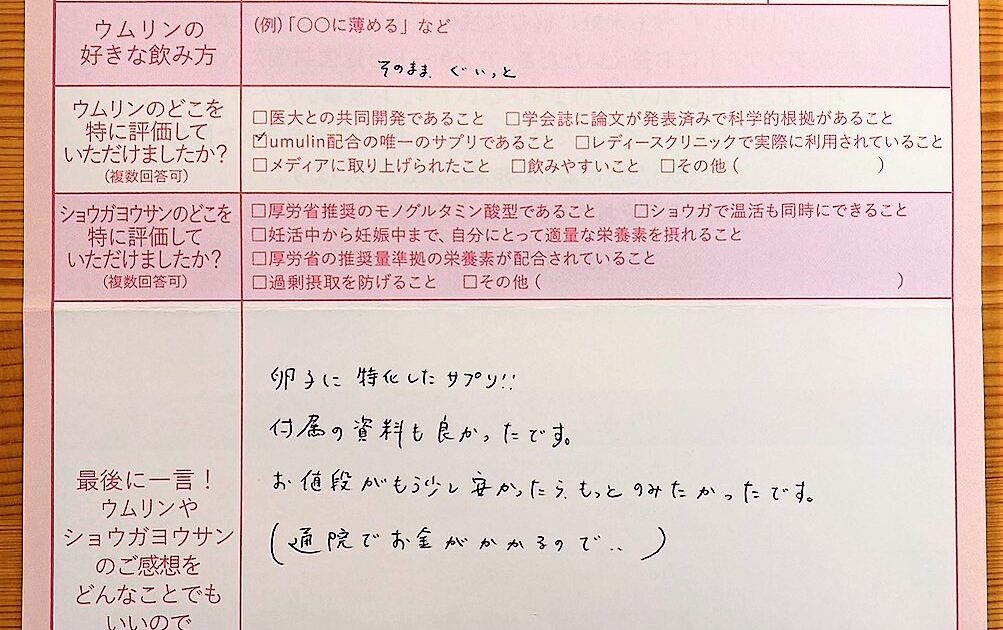 ウムリンの
好きな飲み方
(例)「〇〇に薄める」など
そのまま ぐいっと
ウムリンのどこを
特に評価して
いただけましたか?
(複数回答可)
□医大との共同開発であること □学会誌に論文が発表済みで科学的根拠があること
☑umulin配合の唯一のサプリであること □レディースクリニックで実際に利用されていること
□メディアに取り上げられたこと □飲みやすいこと □その他( )
ショウガヨウサンのどこを
特に評価して
いただけましたか?
(複数回答可)
□厚労省推奨のモノグルタミン酸型であること □ショウガで温活も同時にできること
□妊活中から妊娠中まで、自分にとって適量な栄養素を摂れること
□厚労省の推奨量準拠の栄養素が配合されていること
□過剰摂取を防げること □その他( )
最後に一言!
ウムリンや
ショウガヨウサン
のご感想を
どんなことでも
いいので
卵子に特化したサプリ!!
付属の資料も良かったです。
お値段がもう少し安かったら、もっとのみたかったです。
(通院でお金がかかるので‥)